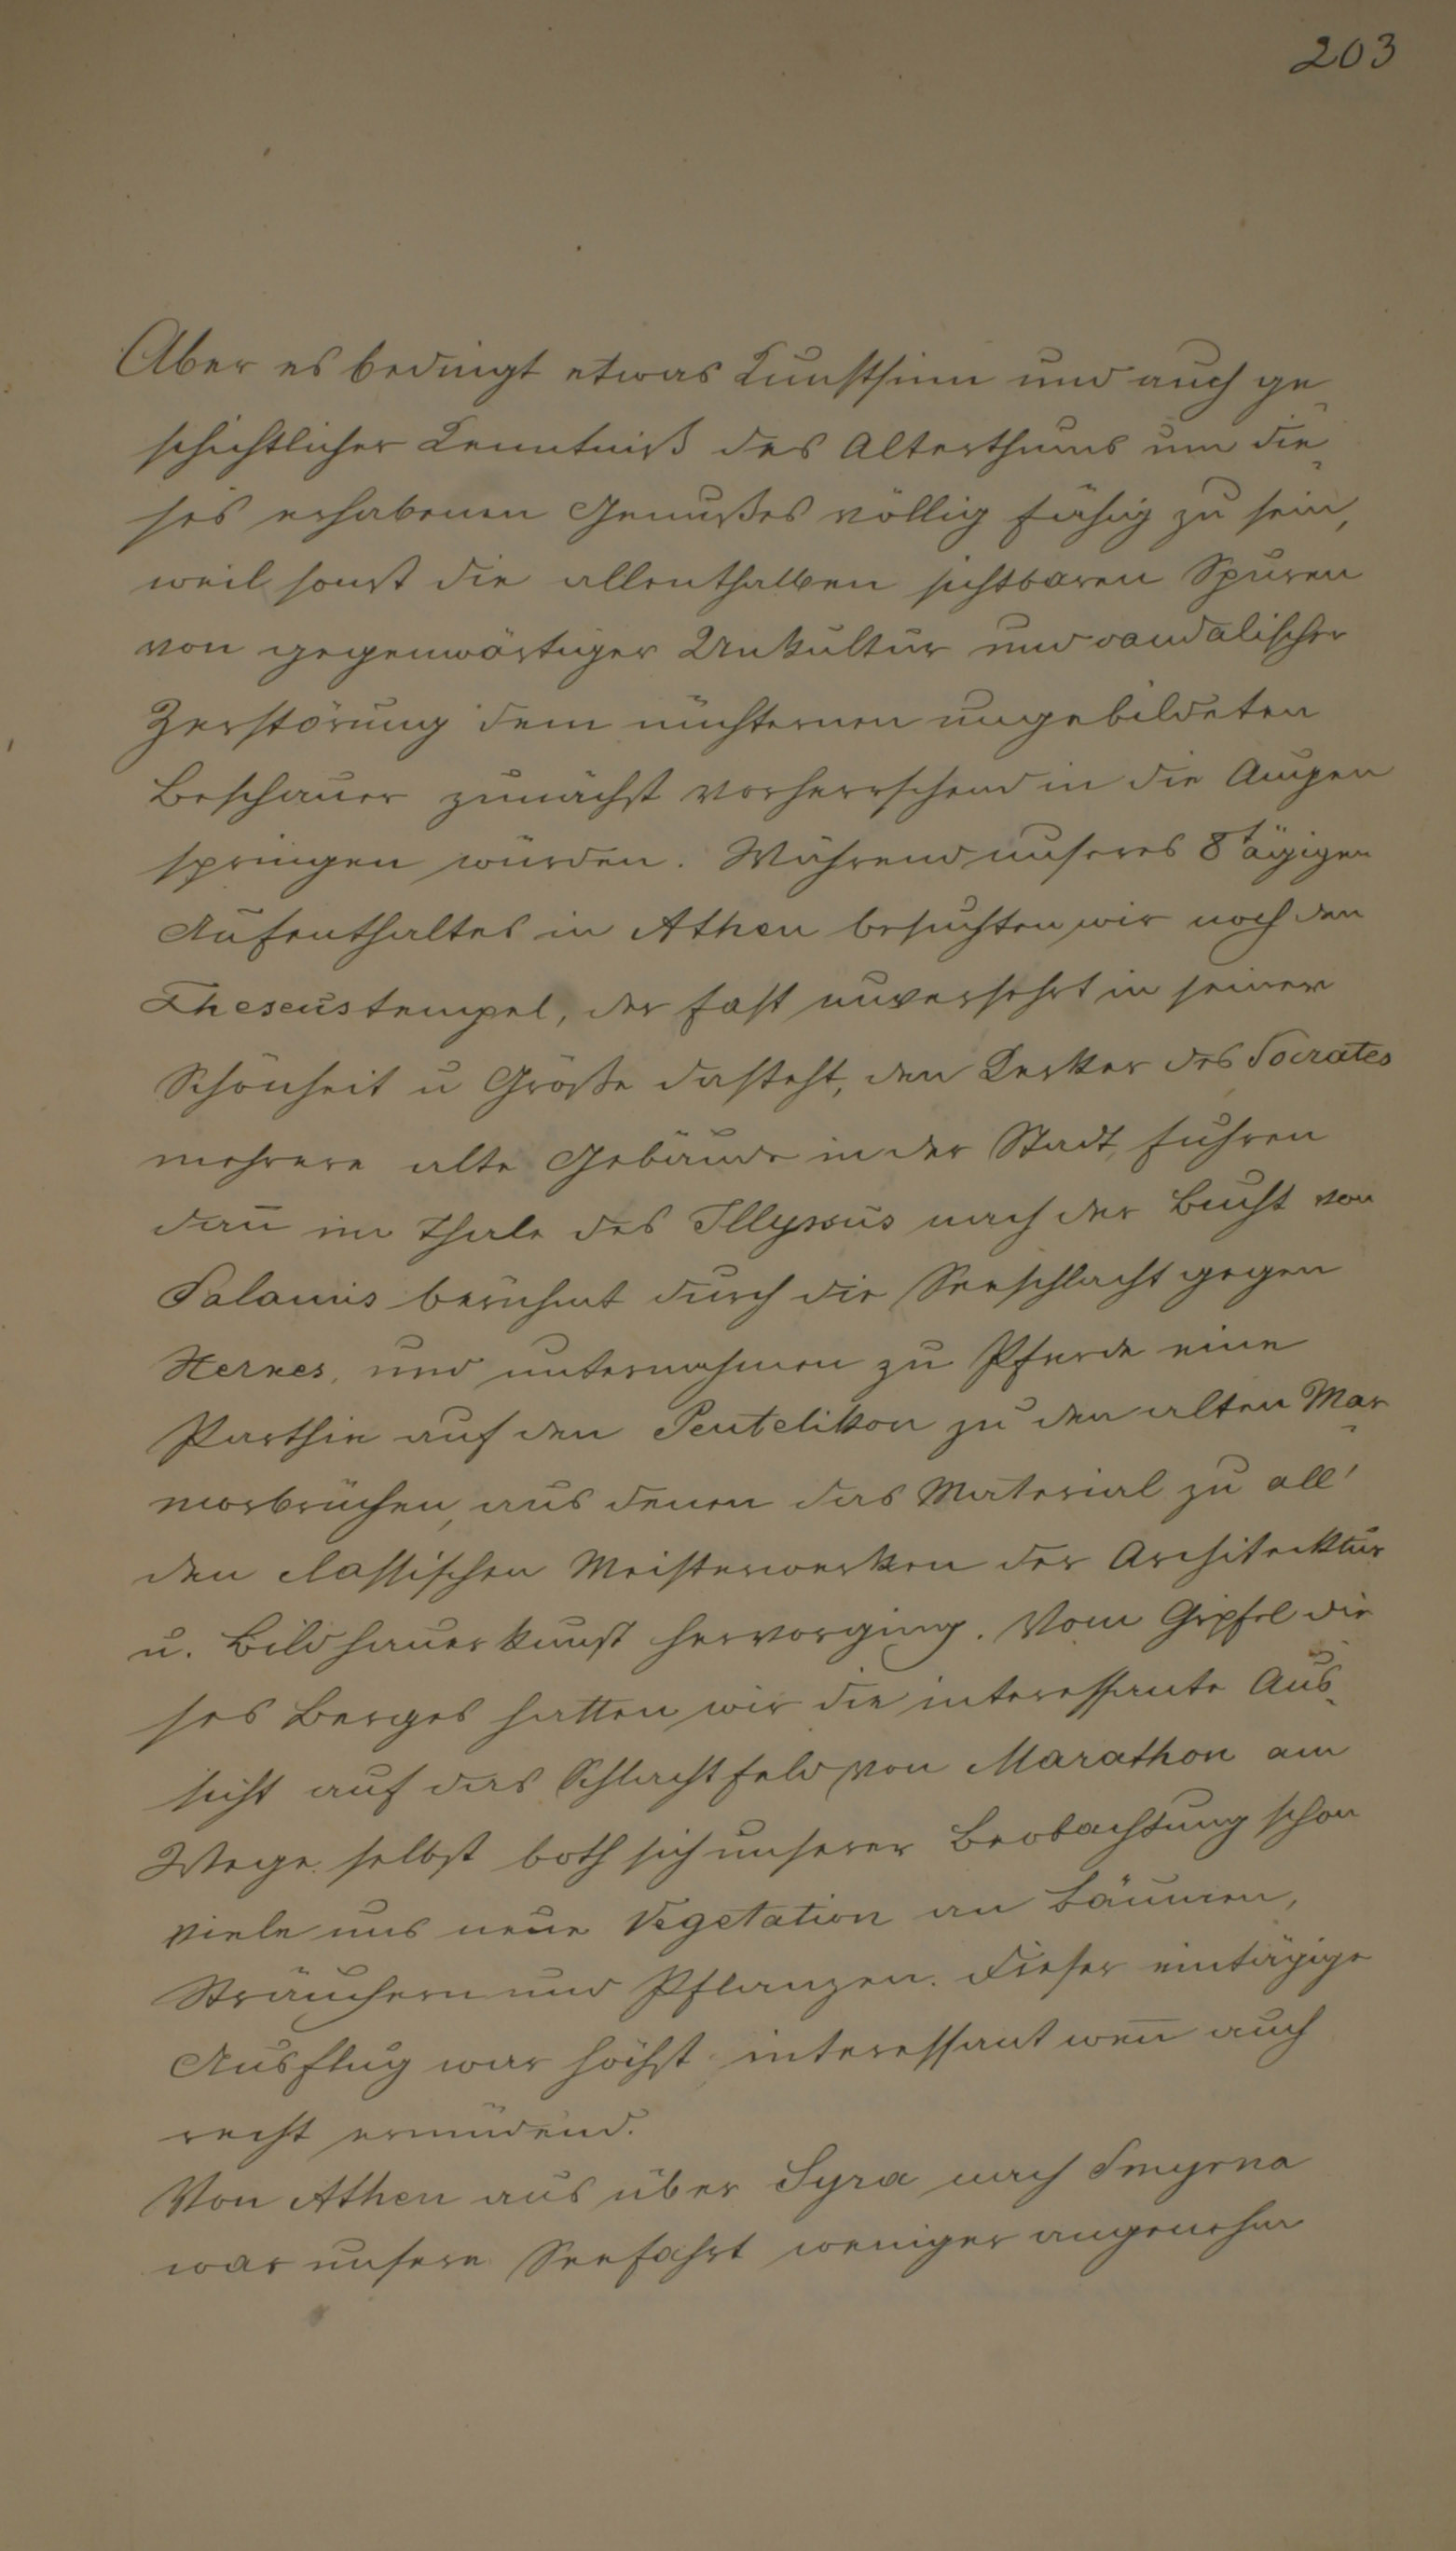 203
Aber es bedingt etwas Kunstsinn und auch ge-
schichtlicher Kenntniß des Alterthums um die-
ses erhabenen Genußes völlig fähig zu sein,
weil sonst die allenthalben sichtbaren Spuren
von gegenwärtiger Unkultur und vandalischer
Zerstörung dem nüchternen ungebildeten
Beschauer zunächst vorherrschend in die Augen
springen würden. Während unseres 8tägigen
Aufenthaltes in Athen besuchten wir noch den
Theseustempel, der fast unversehrt in seiner
Schönheit u Größe dasteht, den Kerker des Socrates
mehrere alte Gebäude in der Stadt, fuhren
dan̄ im Thale des Illyssus nach der Bucht von
Salamis berühmt durch die Seeschlacht gegen
Xerxes, und unternahmen zu Pferde eine
Parthie auf den Pentelikon zu den alten Mar-
morbrüchen, aus denen das Material zu all'
den classischen Meisterwerken der Architecktur
u. Bildhauerkunst hervorging. Vom Gipfel die
ses Berges hatten wir die interessante Aus-
sicht auf das Schlachtfeld von Marathon am
Wege selbst both sich unserer Beobachtung schon
viele uns neue Vegetation an Bäumen,
Sträuchern und Pflanzen. Dieser eintägige
Ausflug war höchst interessant wen̄ auch
recht ermüdend.
Von Athen aus über Syra nach Smyrna
war unsere Seefahrt weniger angenehm